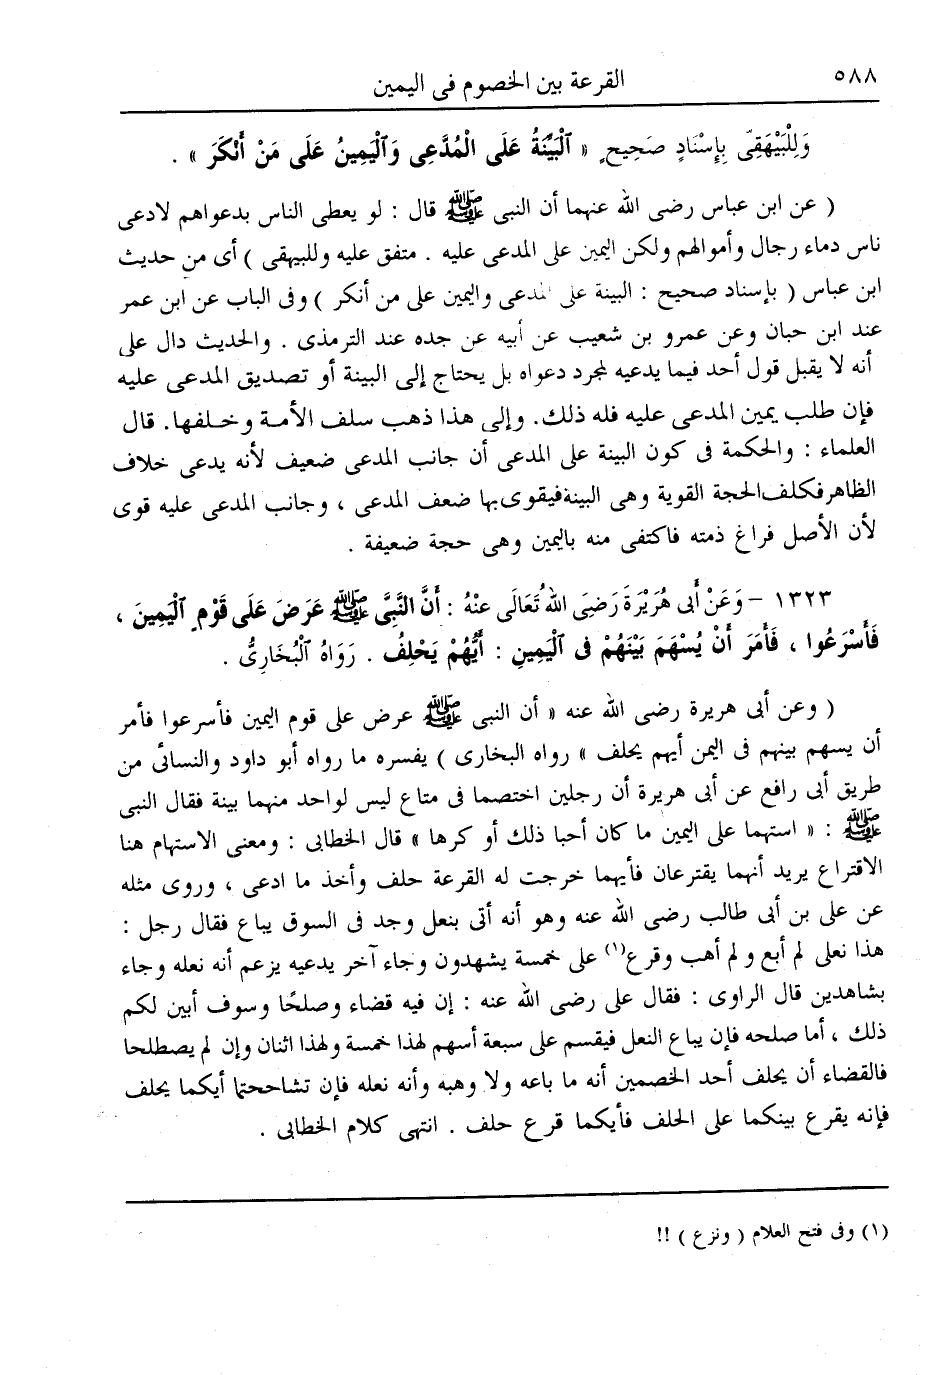 ٥٨٨
القرعة بين الخصوم فى اليمين
وَلِلْبَيْهَقِىِّ بِإِسْنَادٍ صَحِيحٍ « ٱلْبَيِّنَةُ عَلَى الْمُدَّعِى وَٱلْيَمِينُ عَلَى مَنْ أَنْكَرَ » .
( عن ابن عباس رضى الله عنهما أن النبى ﷺ قال : لو يعطى الناس بدعواهم لادعى
ناس دماء رجال وأموالهم ولكن اليمين على المدعى عليه . متفق عليه وللبيهقى ) أى من حديث
ابن عباس ( بإسناد صحيح : البينة على المدعى واليمين على من أنكر ) وفى الباب عن ابن عمر
عند ابن حبان وعن عمرو بن شعيب عن أبيه عن جده عند الترمذى . والحديث دال على
أنه لا يقبل قول أحد فيما يدعيه لمجرد دعواه بل يحتاج إلى البينة أو تصديق المدعى عليه
فإن طلب يمين المدعى عليه فله ذلك. وإلى هذا ذهب سلف الأمـة وخـلفها. قال
العلماء : والحكمة فى كون البينة على المدعى أن جانب المدعى ضعيف لأنه يدعى خلاف
الظاهر فكلف الحجة القوية وهى البينة فيقوى بها ضعف المدعى ، وجانب المدعى عليه قوى
لأن الأصل فراغ ذمته فاكتفى منه باليمين وهى حجة ضعيفة .
١٣٢٣ – وَعَنْ أَبِى هُرَيْرَةَ رَضِىَ اللهُ تَعَالَى عَنْهُ : أَنَّ النَّبِىَّ ﷺ عَرَضَ عَلَى قَوْمٍ ٱلْيَمِينَ ،
فَأَسْرَعُوا ، فَأَمَرَ أَنْ يُسْهَمَ بَيْنَهُمْ فِى ٱلْيَمِينِ : أَيُّهُمْ يَحْلِفُ . رَوَاهُ ٱلْبُخَارِىُّ .
( وعن أبى هريرة رضى الله عنه « أن النبى ﷺ عرض على قوم اليمين فأسرعوا فأمر
أن يسهم بينهم فى اليمن أيهم يحلف » رواه البخارى ) يفسره ما رواه أبو داود والنسائى من
طريق أبى رافع عن أبى هريرة أن رجلين اختصما فى متاع ليس لواحد منهما بينة فقال النبى
ﷺ : « استهما على اليمين ما كان أحبا ذلك أو كرها » قال الخطابى : ومعنى الاستهام هنا
الاقتراع يريد أنهما يقترعان فأيهما خرجت له القرعة حلف وأخذ ما ادعى ، وروى مثله
عن على بن أبى طالب رضى الله عنه وهو أنه أتى بنعل وجد فى السوق يباع فقال رجل :
هذا نعلى لم أبع ولم أهب وقرع(١) على خمسة يشهدون وجاء آخر يدعيه يزعم أنه نعله وجاء
بشاهدين قال الراوى : فقال على رضى الله عنه : إن فيه قضاء وصلحًا وسوف أبين لكم
ذلك ، أما صلحه فإن يباع النعل فيقسم على سبعة أسهم لهذا خمسة ولهذا اثنان وإن لم يصطلحا
فالقضاء أن يحلف أحد الخصمين أنه ما باعه ولا وهبه وأنه نعله فإن تشاححتما أيكما يحلف
فإنه يقرع بينكما على الحلف فأيكما قرع حلف . انتهى كلام الخطابى .
(١) وفى فتح العلام ( ونزع ) !!